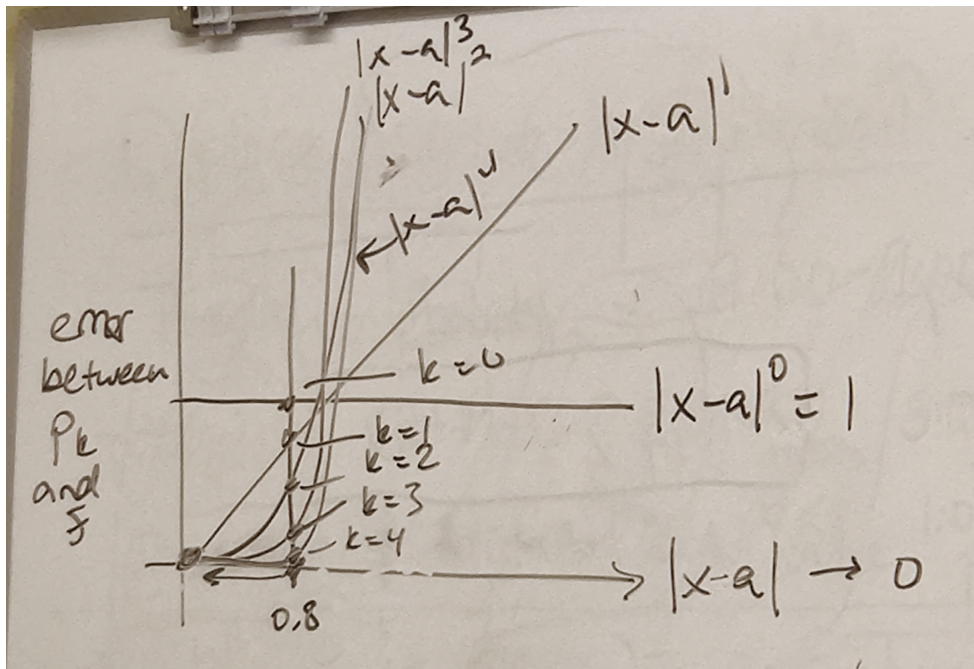 |x-a|³
|x-a|²
|x-a|¹
|x-a|⁴
error
between
Pk
and
f
k=0
|x-a|⁰ = 1
k=1
k=2
k=3
k=4
|x-a| → 0
0.8